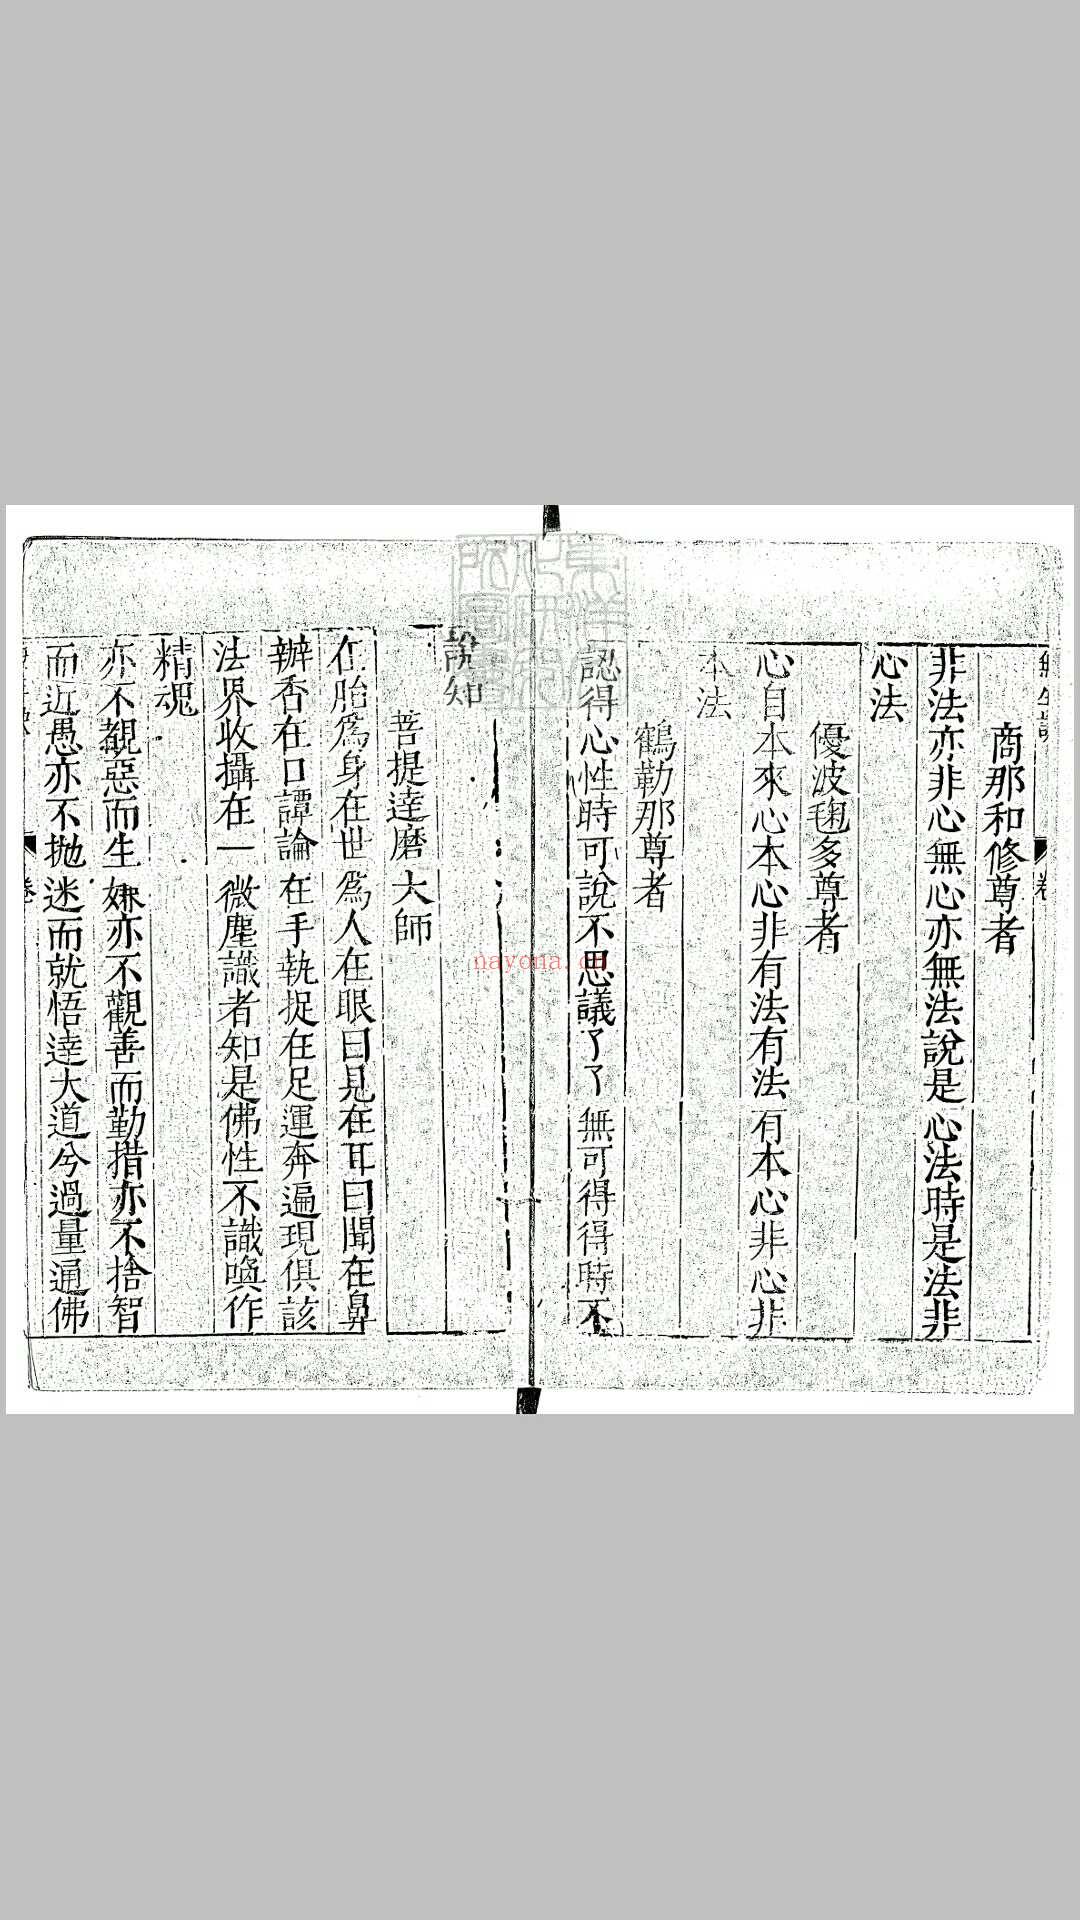 商那和修尊者
非法亦非心無心亦無法說是心法時是法非
心法
優波毱多尊者
心自本來心本心非有法有法有本心非心非
本法
鶴勒那尊者
認得心性時可說不思議了了無可得得時不
說知
菩提達磨大師
在胎爲身在世爲人在眼曰見在耳曰聞在鼻
辦香在口譚論在手執捉在足運奔遍現俱該
法界收攝在一微塵識者知是佛性不識喚作
精魂
亦不覩惡而生嫌亦不觀善而勤措亦不捨智
而近愚亦不拋迷而就悟達大道兮過量通佛
卷
nayona.cn